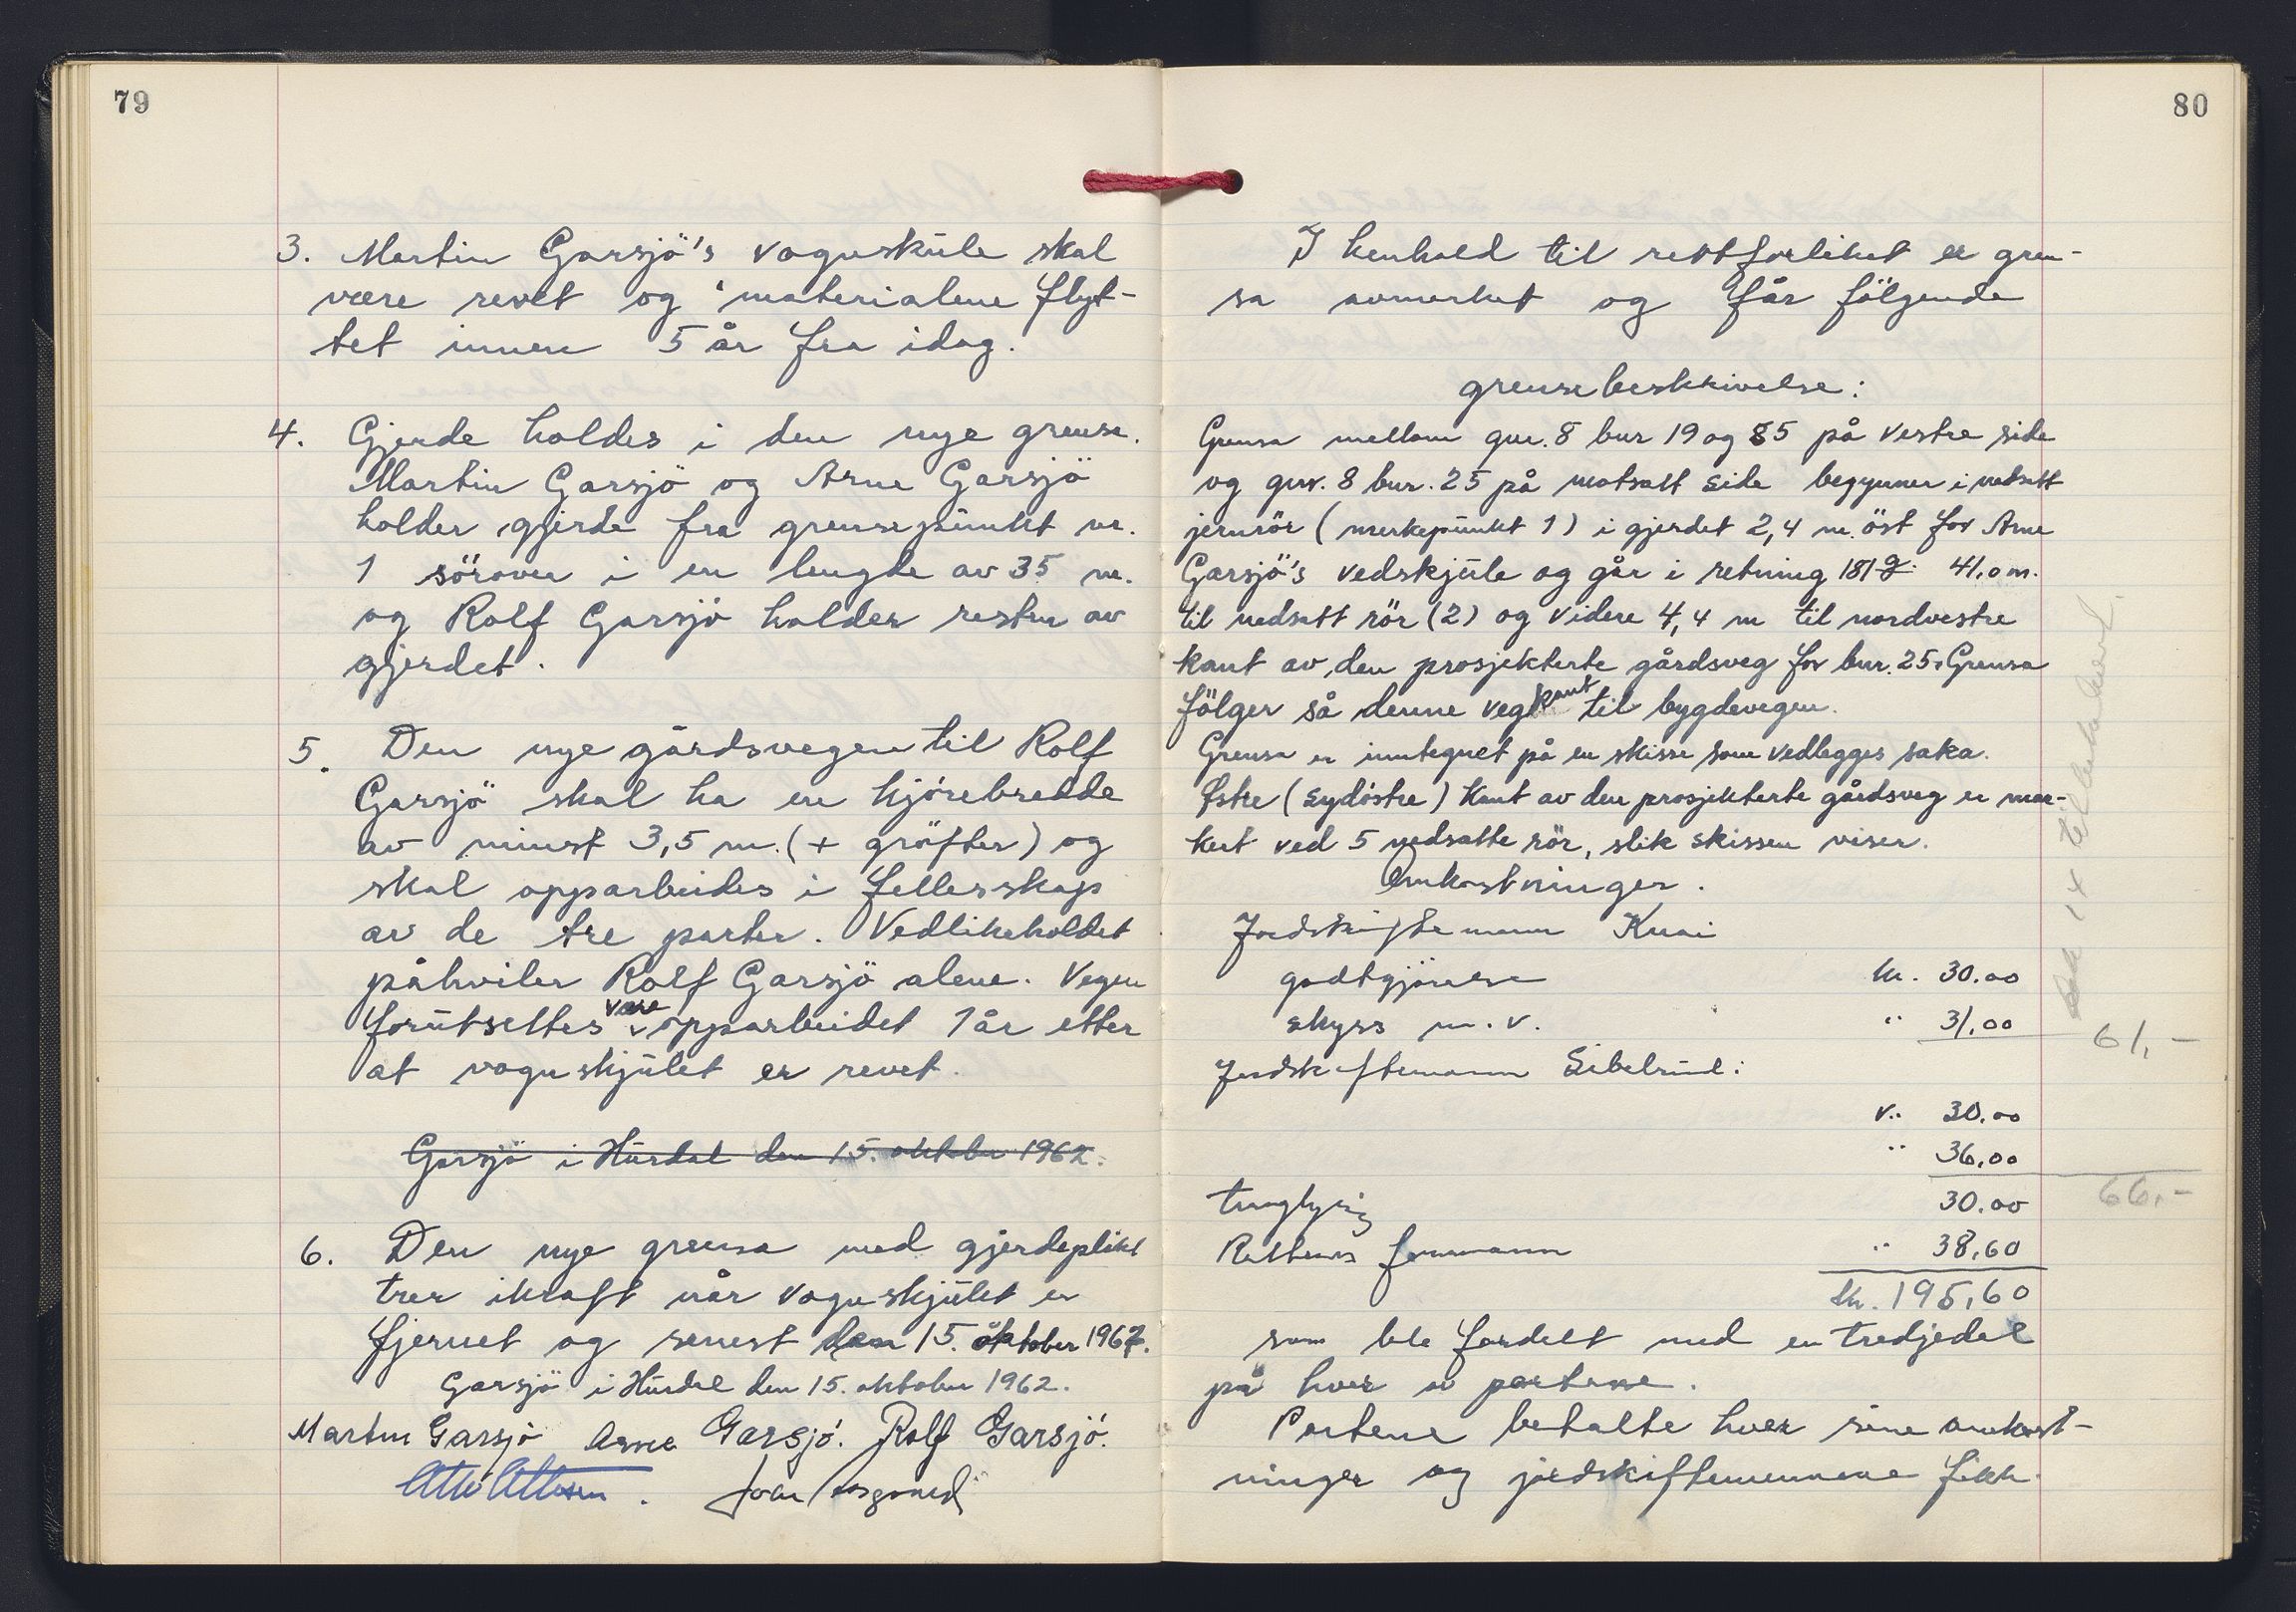 79
3. Martin Garsjö's vognskule skal
være revet og materialene flyt-
tet innen 5 år fra idag.
4. Gjerde holdes i den nye grense.
Martin Garsjö og Arne Garsjö
holder gjerde fra grensepunkt nr.
1 sörover i en lengde av 35 m.
og Rolf Garsjö holder resten av
gjerdet.
5. Den nye gårdsvegen til Rolf
Garsjö skal ha en kjörebredde
av minst 3,5 m. (+ gröfter) og
skal opparbeides i fellesskap
av de tre parter. Vedlikeholdet
påhviler Rolf Garsjö alene. Vegen
forutsettes være opparbeidet 1 år etter
at vognskjulet er revet.
Garsjö i Hurdal den 15. oktober 1962.
6. Den nye grensa med gjerdeplikt
trer ikraft når vognskjulet er
fjernet og senest den 15. oktober 1967.
Garsjö i Hurdal den 15. oktober 1962.
Martin Garsjö Arne Garsjö. Rolf Garsjö.
80
I henhold til rettforliket er gren-
sa avmerket og får fölgende
grensebeskrivelse:
Grensa mellom gnr. 8 bnr 19 og 85 på vestre side
og gnr. 8 bnr. 25 på motsatt side begynner i nedsatt
jernrör (merkepunkt 1) i gjerdet 2,4 m. öst for Arne
Garsjö's vedskjule og går i retning 181 g. 41,0 m.
til nedsatt rör (2) og videre 4,4 m til nordvestre
kant av den prosjekterte gårdsveg for bnr. 25. Grensa
fölger så denne vegkant til bygdevegen.
Grensa er inntegnet på en skisse som vedlegges saka.
Østre (sydöstre) kant av den prosjekterte gårdsveg er mer-
ket ved 5 nedsatte rör, slik skissen viser.
Omkostninger.
Jordskiftemann Knai
godtgjörelse kr. 30.00
skyss m.v. " 31,00
61,-
Jordskiftemann Sibelrud:
30.00
" 36,00
66,-
Tinglysing 30.00
Rettens formann " 38,60
kr. 195,60
som ble fordelt med en tredjedel
på hver av partene.
Partene betalte hver sine omkost-
ninger og jordskiftemennene fikk